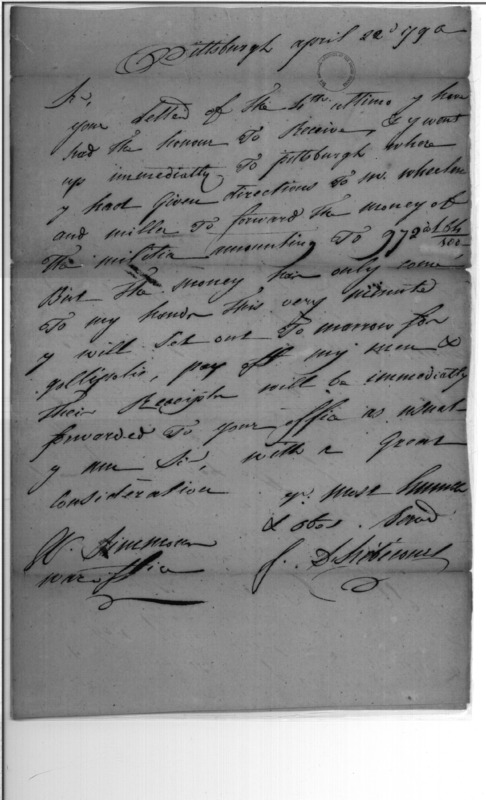 Pittsburgh april 22d 179
Sir,
your letter of the 4th ultimo y have
had the honour To Receive, & y went
up immediatly To pittsburgh where
y had Given directions To Mr. wheelen
and miller To forward the money of
the militia amounting To 972
But the money has only come
To my hands this very minute
y will set out To morrow for
gallipolis, pay off my men &
their Receipts will be immediatly
forwarded To your office as usual
y am Sir, with a Great
Consideration yr. most humble
& obt. Servt.
W. Simmons
war office
J.